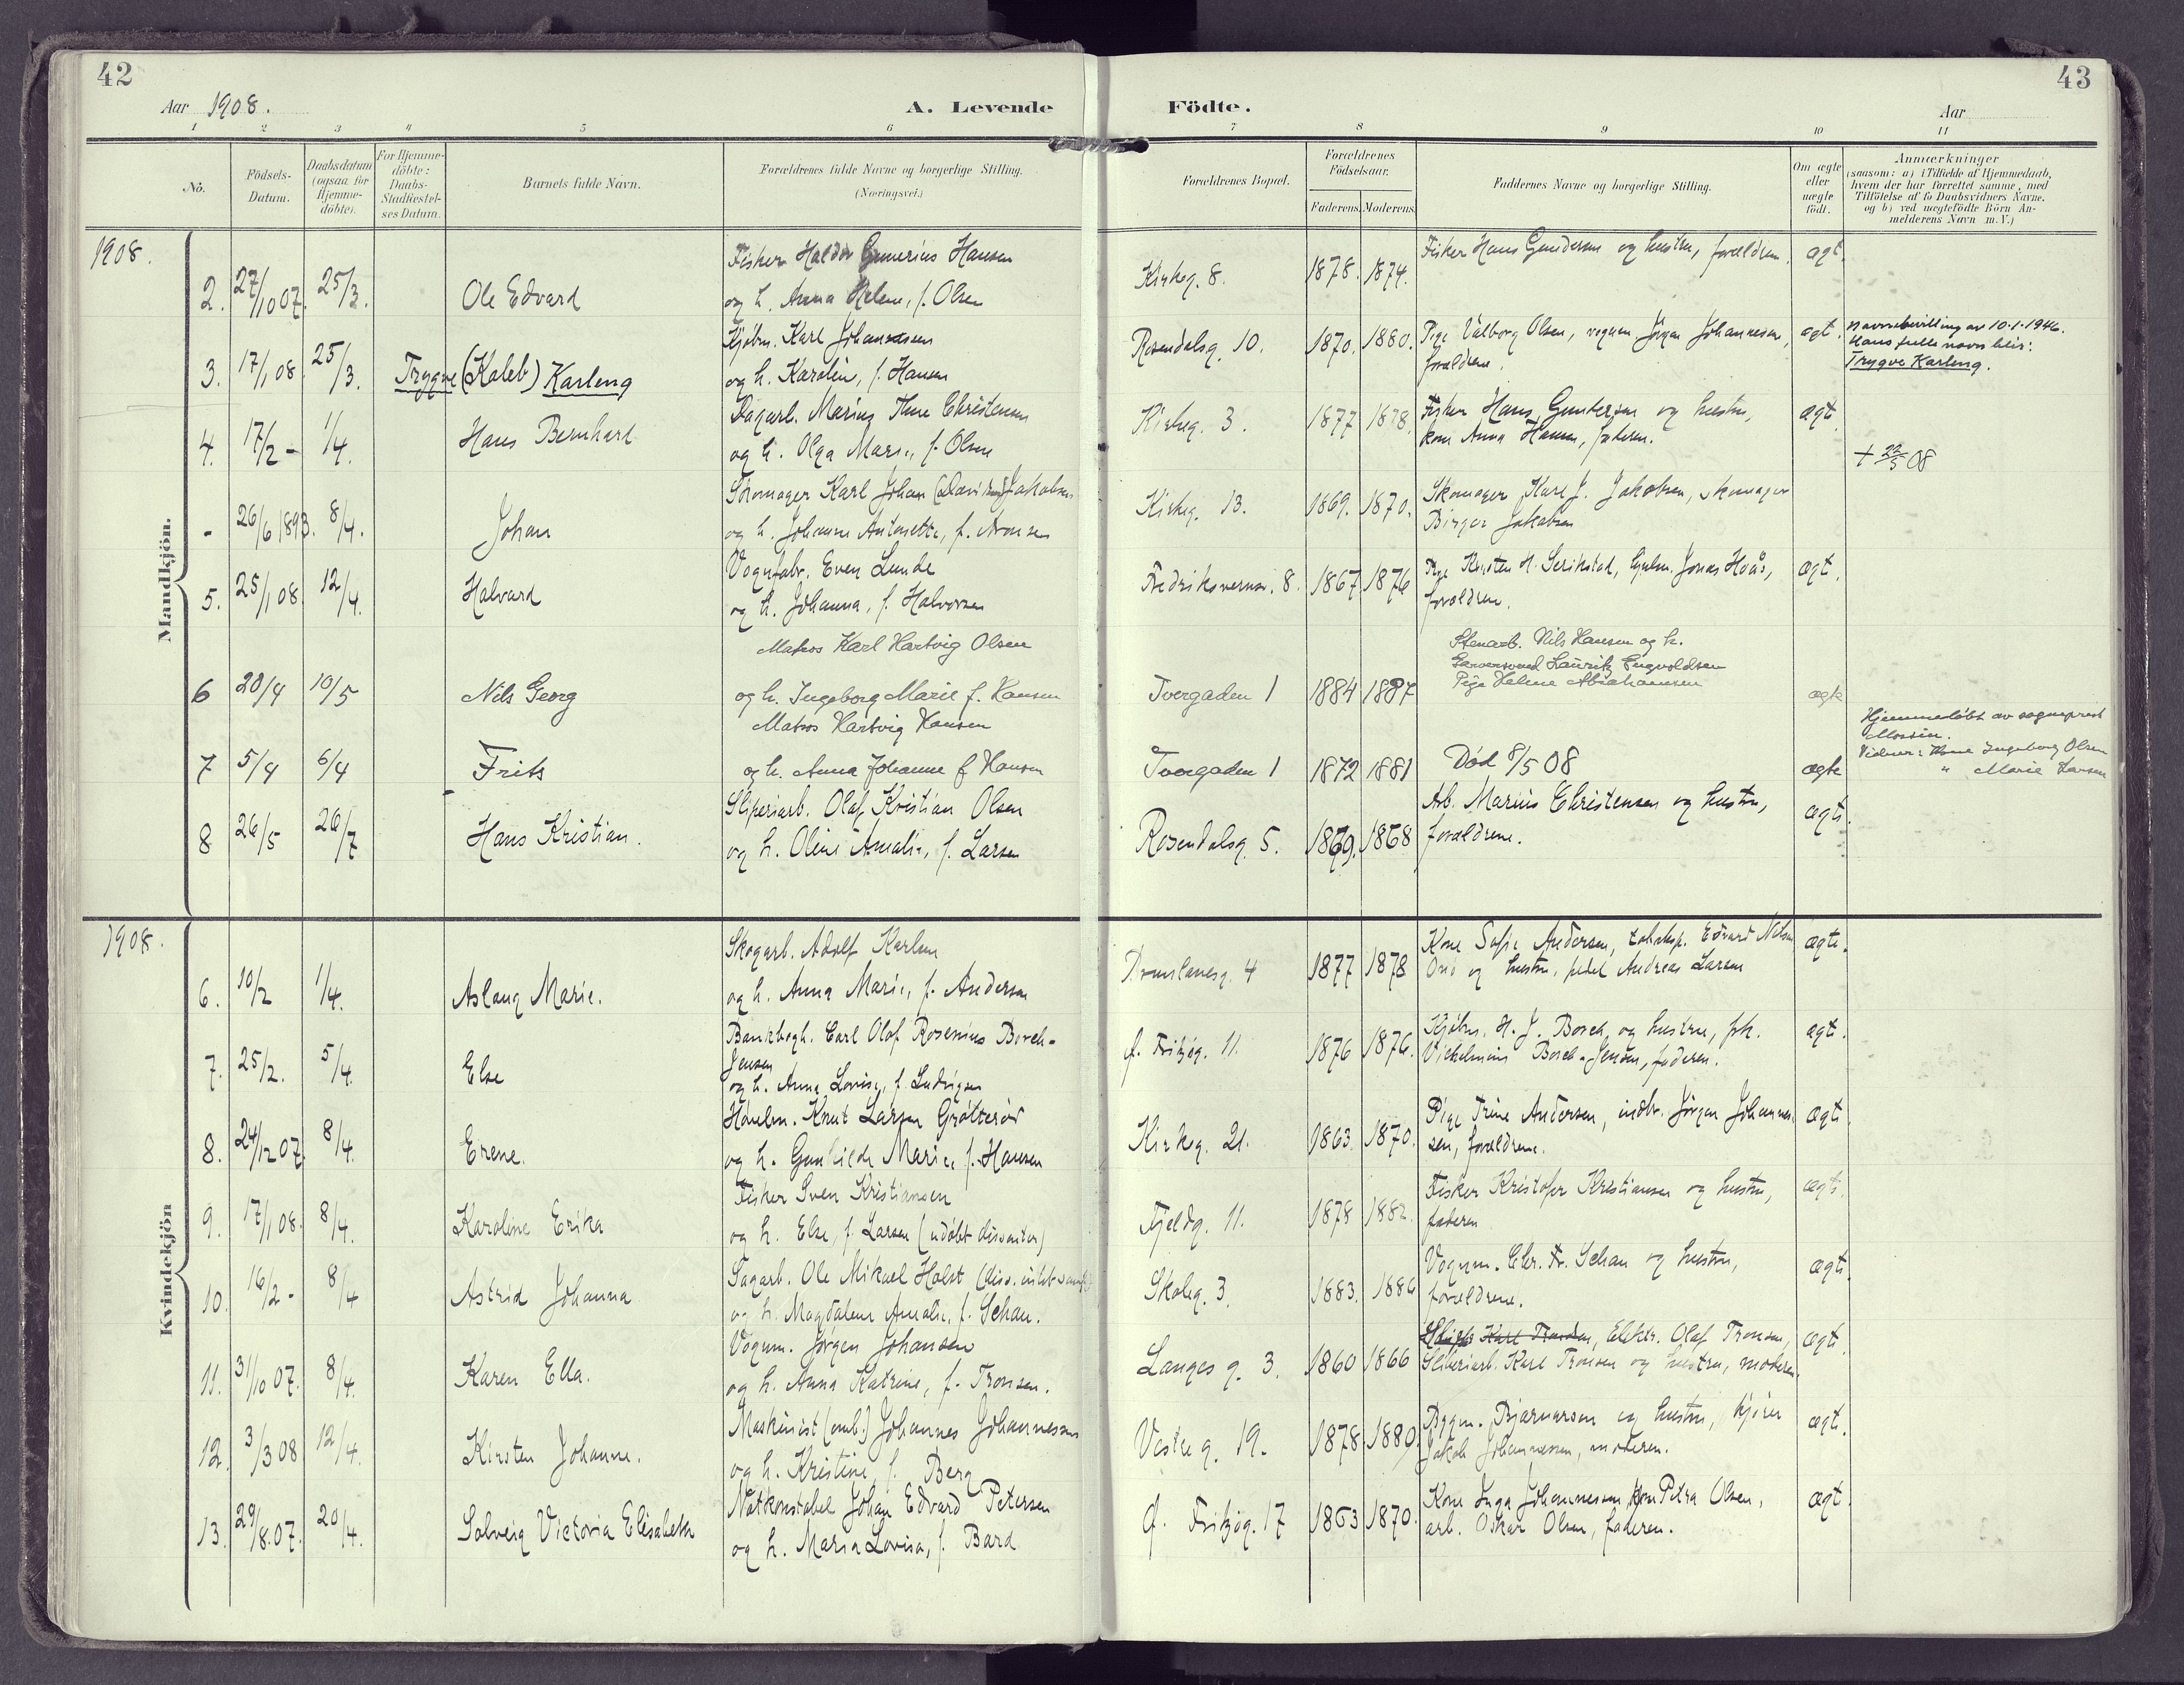 42
Aar 1908.
A. Levende
1 2 3 4 5 6
No. Födsels-Datum. Daabsdatum (ogsaa for Hjemme-döbte). For Hjemme-döbte: Daabs-Stadfæstel-ses Datum. Barnets fulde Navn. Forældrenes fulde Navne og borgerlige Stilling. (Næringsvei.)
1908.
Mandkjön.
Fisker Haldor Gunerius Hansen
2. 27/10 07. 25/3. Ole Edvard og h. Anna Helene, f. Olsen
Kjöbm. Karl Johannesen
3. 17/1 08. 25/3. Trygve (Kaleb) Karleng og h. Karolin, f. Hansen
Marius Christensen
4. 17/2 - 1/4. Hans Bernhard og h. Olga Marie, f. Olsen
Karl Johan Jakobsen
- 26/6 1893. 8/4. Johan og h. Johanne Antonette, f.
Vognfabr. Even Lunde
5. 25/1 08. 12/4. Halvard og h. Johanna, f. Halvorsen
Matros Karl Hartvig Olsen
6 20/4 10/5 Nils Georg og h. Ingeborg Marie f. Hansen
Matros Hartvig Hansen
7 5/4 6/4 Frits og h. Anna Johanne f Hansen
Sliperiarb. Olaf Kristian Olsen
8 26/5 26/7 Hans Kristian. og h. Oline Amalie, f. Larsen
1908.
Kvindekjön
Skogarb. Adolf Karlsen
6. 10/2 1/4. Aslaug Marie. og h. Anna Marie, f. Andersen
Bankbogh. Carl Olaf Rosenius Borch-
Jensen
7. 25/2. 5/4. Else og h. Anna Lovise, f. Ludvigsen
Knut Larsen Grötteröd
8. 24/12 07. 8/4. Erene. og h. Gunhilde Marie, f. Hansen
Fisker Sven Kristiansen
9. 17/1 08. 8/4. Karoline Erika og h. Else, f. Larsen (udöbt dissenter)
Sagarb. Ole Mikael Holst
10. 16/2 - 8/4 Astrid Johanna og h. Magdalene Amalie, f. Schau.
Vognm. Jørgen Johansen
11. 31/10 07. 8/4. Karen Ella. og h. Anna Katrine, f. Tronsen.
Maskinist (omb.) Johannes Johannessen
12. 3/3 08 12/4. Kirsten Johanne. og h. Kristine, f. Berg
Natkonstabel Johan Edvard Petersen
13. 29/8.07. 20/4. Solveig Victoria Elisabeth og h. Maria Lovisa, f. Bard
43
Födte.
Aar
7 8 9 10 11
Forældrenes Bopæl. Forældrenes Födselsaar. Faderens. Moderens. Faddernes Navne og borgerlige Stilling. Om ægte eller uægte födt. Anmærkninger (saasom: a) i Tilfælde af Hjemmedaab, hvem der har forrettet samme, med Tilföielse af to Daabsvidners Navne. og b) ved uægtefödte Börn An-melderens Navn m. V.)
Kirkeg. 8. 1878. 1874. Fisker Hans Gundersen og hustru, forældrene. ægt.
Rosendalsg. 10. 1870. 1880. Pige Valborg Olsen, vognm. Jörgen Johannesen, ægt.
forældrene.
Navnebevilling av 10.1.1946.
Hans fulle navn blir:
Trygve Karleng.
Kirkeg. 3. 1877 1878. Fisker Hans Gundersen og hustru, ægt.
kone Anna Hansen, faderen.
+ 22/5 08
Kirkeg. 13. 1869. 1870. Skomager Karl J. Jakobsen, skomager
Birger Jakobsen
8. 1867 1876 Jonas Hoås, ægt.
forældrene.
Stenarb. Nils Hansen og h.
Lauritz Engvoldsen
Tvergaden 1 1884 1887 Pige Helene Abrahamsen ægte
Tvergaden 1 1872 1881 Död 8/5 08 ægte
Hjemmedöbt av sogneprest
Vidner: Kone Ingeborg Olsen
" Marie Larsen
Rosendalsg. 5. 1869. 1868 Arb. Marius Christensen og hustru, ægte.
forældrene.
4 1877 1878 Kone Sofie Andersen, Edvard Nilsen ægte.
og hustru, Andreas Larsen
Fritzög. 11. 1876 1876. Kjöbm. H. J. Borch og hustru, frk. ægt.
Vilhelmine Borch-Jensen, faderen.
Kirkeg. 21. 1863. 1870. Pige Trine Andersen, Jörgen Johannes- ægte.
sen, forældrene.
Fjeldg. 11. 1878 1882. Fisker Kristofer Kristiansen og hustru, ægte.
faderen
Skoleg. 3. 1883. 1886 Vognm. Chr. Fr. Schau og hustru, ægte.
forældrene.
Langes g. 3. 1860 1866 Elektr. Olaf Tronsen, ægte.
Sliberiarb. Karl Tronsen og hustru, moderen.
Vestre g. 19. 1878. 1880. Bygm. Bjarnarson og hustru, kjörer ægte.
Jakob Johannessen, moderen.
Fritzög. 17 1863 1870. Kone Inga Johannessen, kone Petra Olsen, ægt.
arb. Oskar Olsen, faderen.